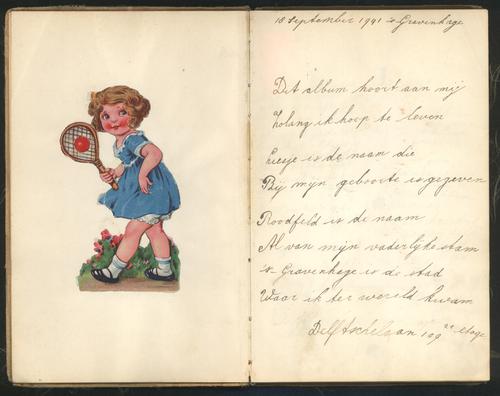 18 September 1941 's Gravenhage
Dit album hoort aan mij
Zolang ik hoop te leven
Liesje is de naam die
Bij mijn geboorte is gegeven
Roodfeld is de naam
Al van mijn vaderlijke stam
's Gravenhage is de stad
Waar ik ter wereld kwam
Delftschelaan 109 etage